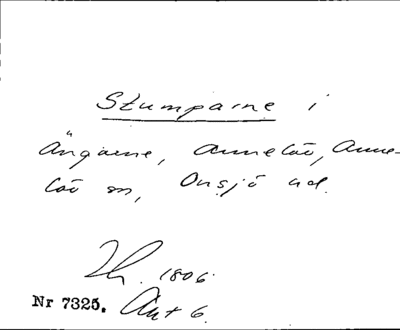 Stumparne i
Ängarne, Annelöv, Anne-
löv sn, Onsjö hd.
1806.
Nr 7325. Akt 6.